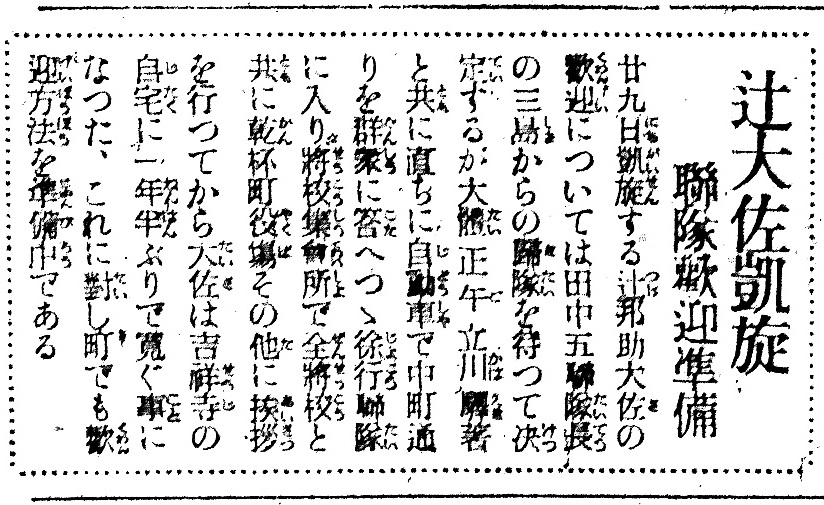 辻大佐凱旋
聯隊歡迎準備
廿九日凱旋する辻邦助大佐の
歡迎については田中五聯隊長
の三島からの歸隊を待つて決
定するが大體正午立川驛著
と共に直ちに自動車で中町通
りを群衆に答へつゝ徐行聯隊
に入り將校集會所で全將校と
共に乾杯町役場その他に挨拶
を行つてから大佐は吉祥寺の
自宅に一年半ぶりで寛ぐ事に
なつた、これに對し町でも歡
迎方法を準備中である